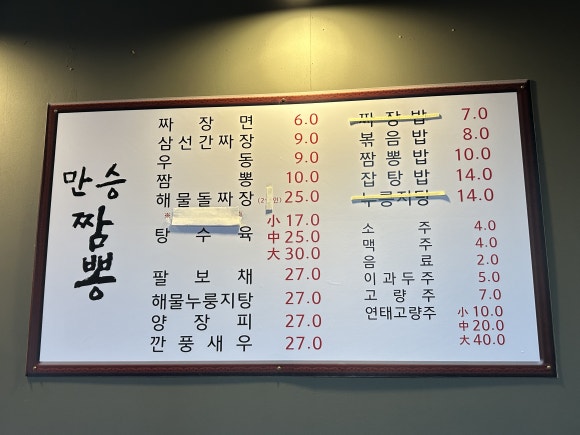 만승
짬뽕
짜장면 6.0
삼선간짜장 9.0
우동 9.0
짬뽕 10.0
해물돌짜장 25.0
탕수육 小 17.0
中 25.0
大 30.0
팔보채 27.0
해물누룽지탕 27.0
양장피 27.0
깐풍새우 27.0
짜장밥 7.0
볶음밥 8.0
짬뽕밥 10.0
잡탕밥 14.0
누룽지탕 14.0
소주 4.0
맥주 4.0
음료 2.0
이과두주 5.0
고량주 7.0
연태고량주 小 10.0
中 20.0
大 40.0